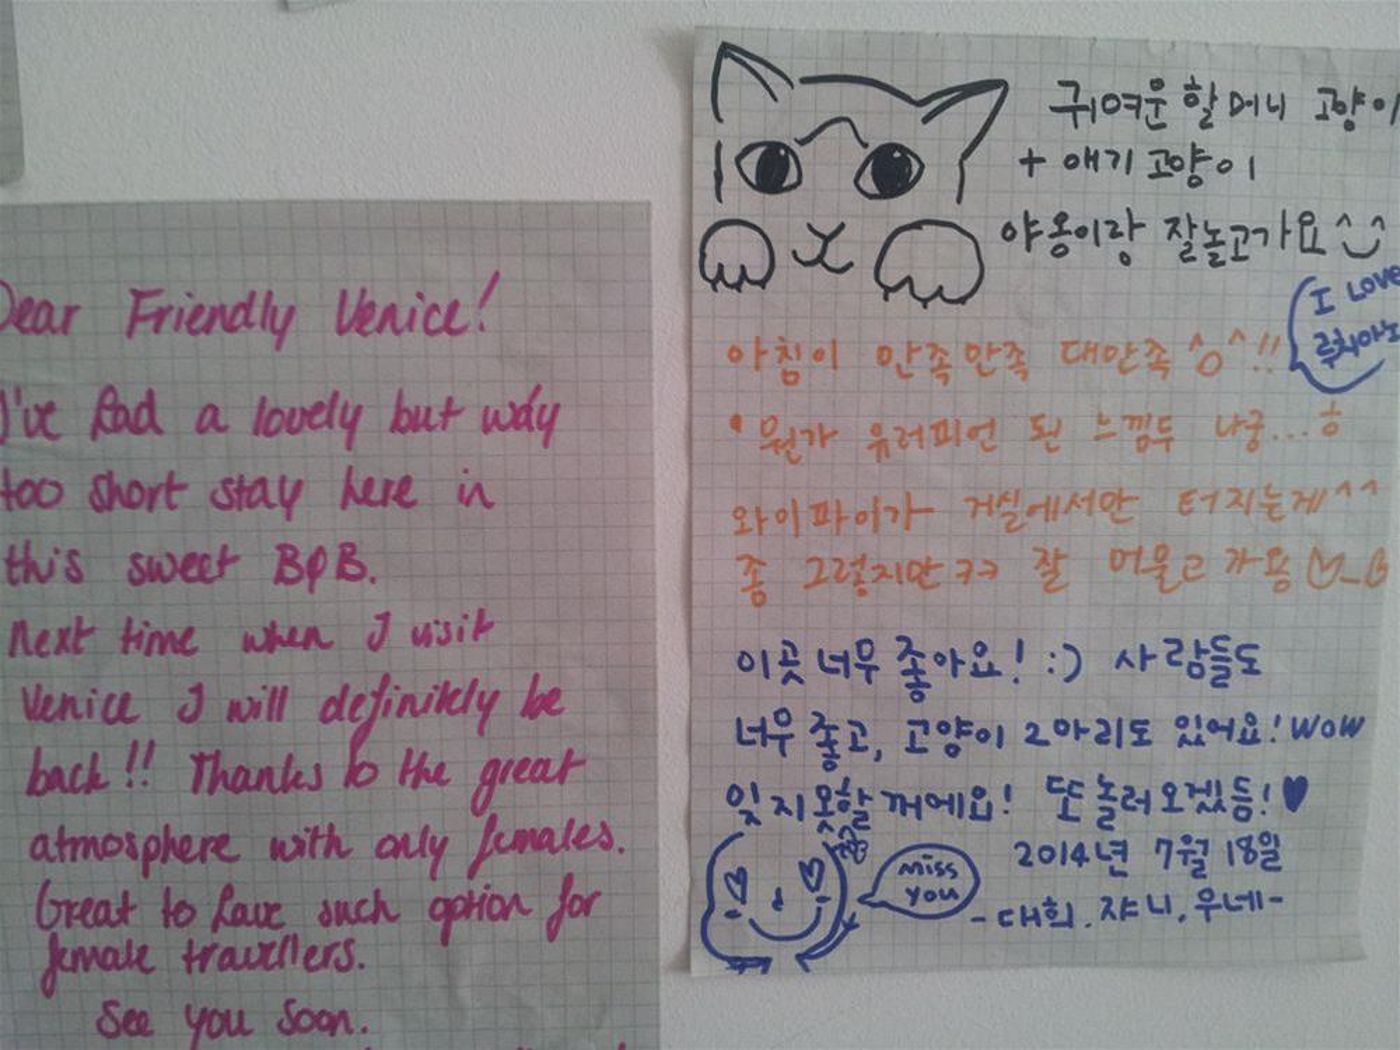 Dear Friendly Venice!
I've had a lovely but way
too short stay here in
this sweet B&B.
Next time when I visit
Venice I will definitely be
back!! Thanks to the great
atmosphere with only females.
Great to have such option for
female travellers.
See you soon.
귀여운 할머니 고양이
+ 애기 고양이
야옹이랑 잘놀고가요^‿^
I LOVE
루치아노
아침이 만족만족 대만족^o^!!
뭔가 유러피언 된 느낌두 나궁...ㅎ
와이파이가 거실에서만 터지는게^^
좀 그렇지만ㅋㅋ 잘 머물고 가용
이곳 너무 좋아요! :) 사람들도
너무 좋고, 고양이 2마리도 있어요! WOW
잊지못할꺼에요! 또 놀러오겠듬!♥
miss
you
2014년 7월 18일
-대희. 쟈니. 우네-